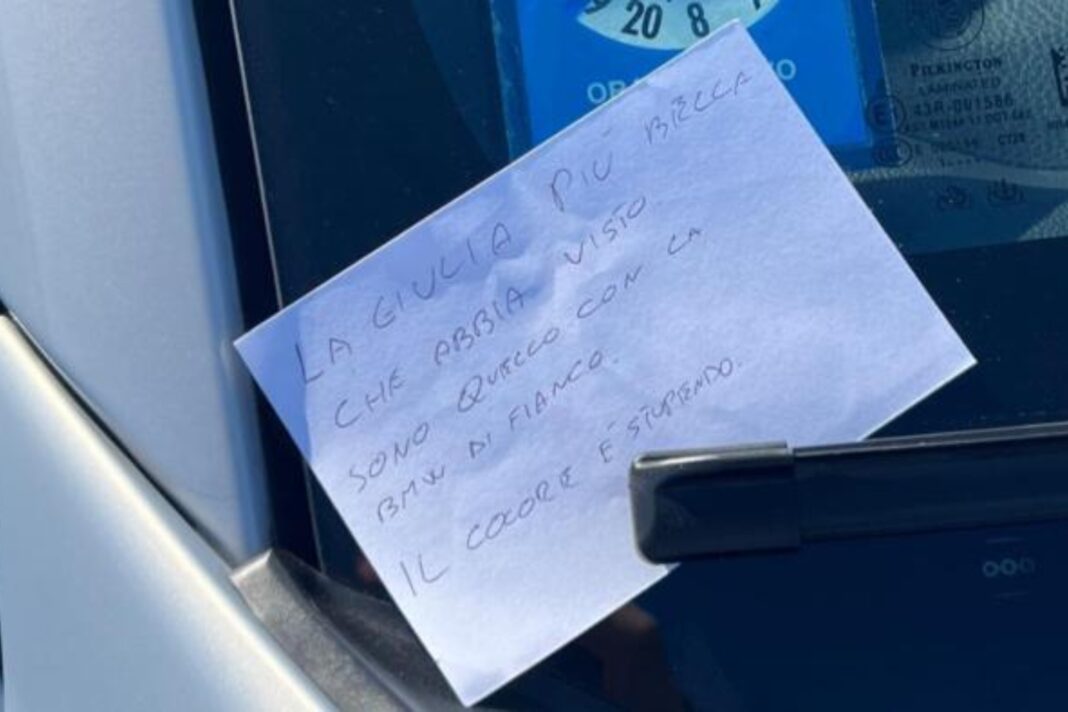 20 8
PILKINGTON
LAMINATED
43R-001586
LA GIULIA PIÙ BELLA
CHE ABBIA VISTO.
SONO QUELLO CON LA
BMW DI FIANCO.
IL COLORE È STUPENDO.